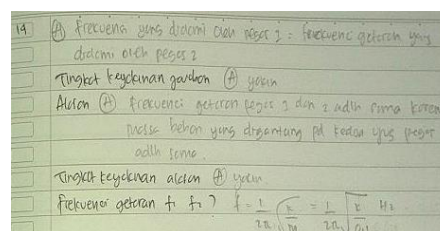 14 (A) frekuensi yang dialami oleh pegas 1 = frekuensi getaran yang
dialami oleh pegas 2
Tingkat keyakinan jawaban (A) yakin
Alasan (A) frekuensi getaran pegas 1 dan 2 adlh sama karena
massa beban yang digantung pd kedua pegas
adlh sama.
Tingkat keyakinan alasan (A) yakin
frekuensi getaran f₁ f₂ ? f = 1/2π √k/m = 1/2π √k/ Hz